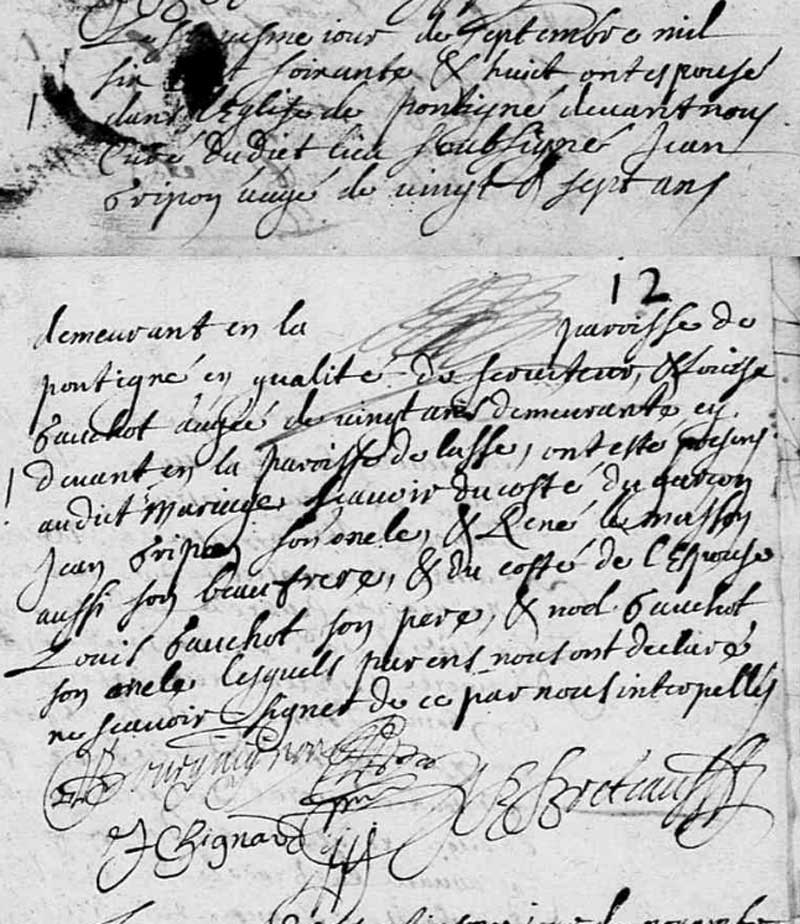 jour de septembre mil
six soixante & huict ont espousé
dans l'Eglise de pontigné devant nous
Curé dudict lieu soubsigné Jean
Gripon aagé de vingt & sept ans
12
demeurant en la paroisse de
pontigné en qualité de serviteur, & Louise
Gauchot aagée de vingt ans demeurante cy
devant en la paroisse de lasse, ont esté presens
audict Mariage scavoir du costé du garcon
Jean Gripon son oncle, & René le masson
aussi son beau frere, & du costé de l'Espouse
Louis Gauchot son pere, & noel Gauchot
son oncle lesquels parens nous ont declaré
ne scavoir signer de ce par nous interpellés
J Chignard